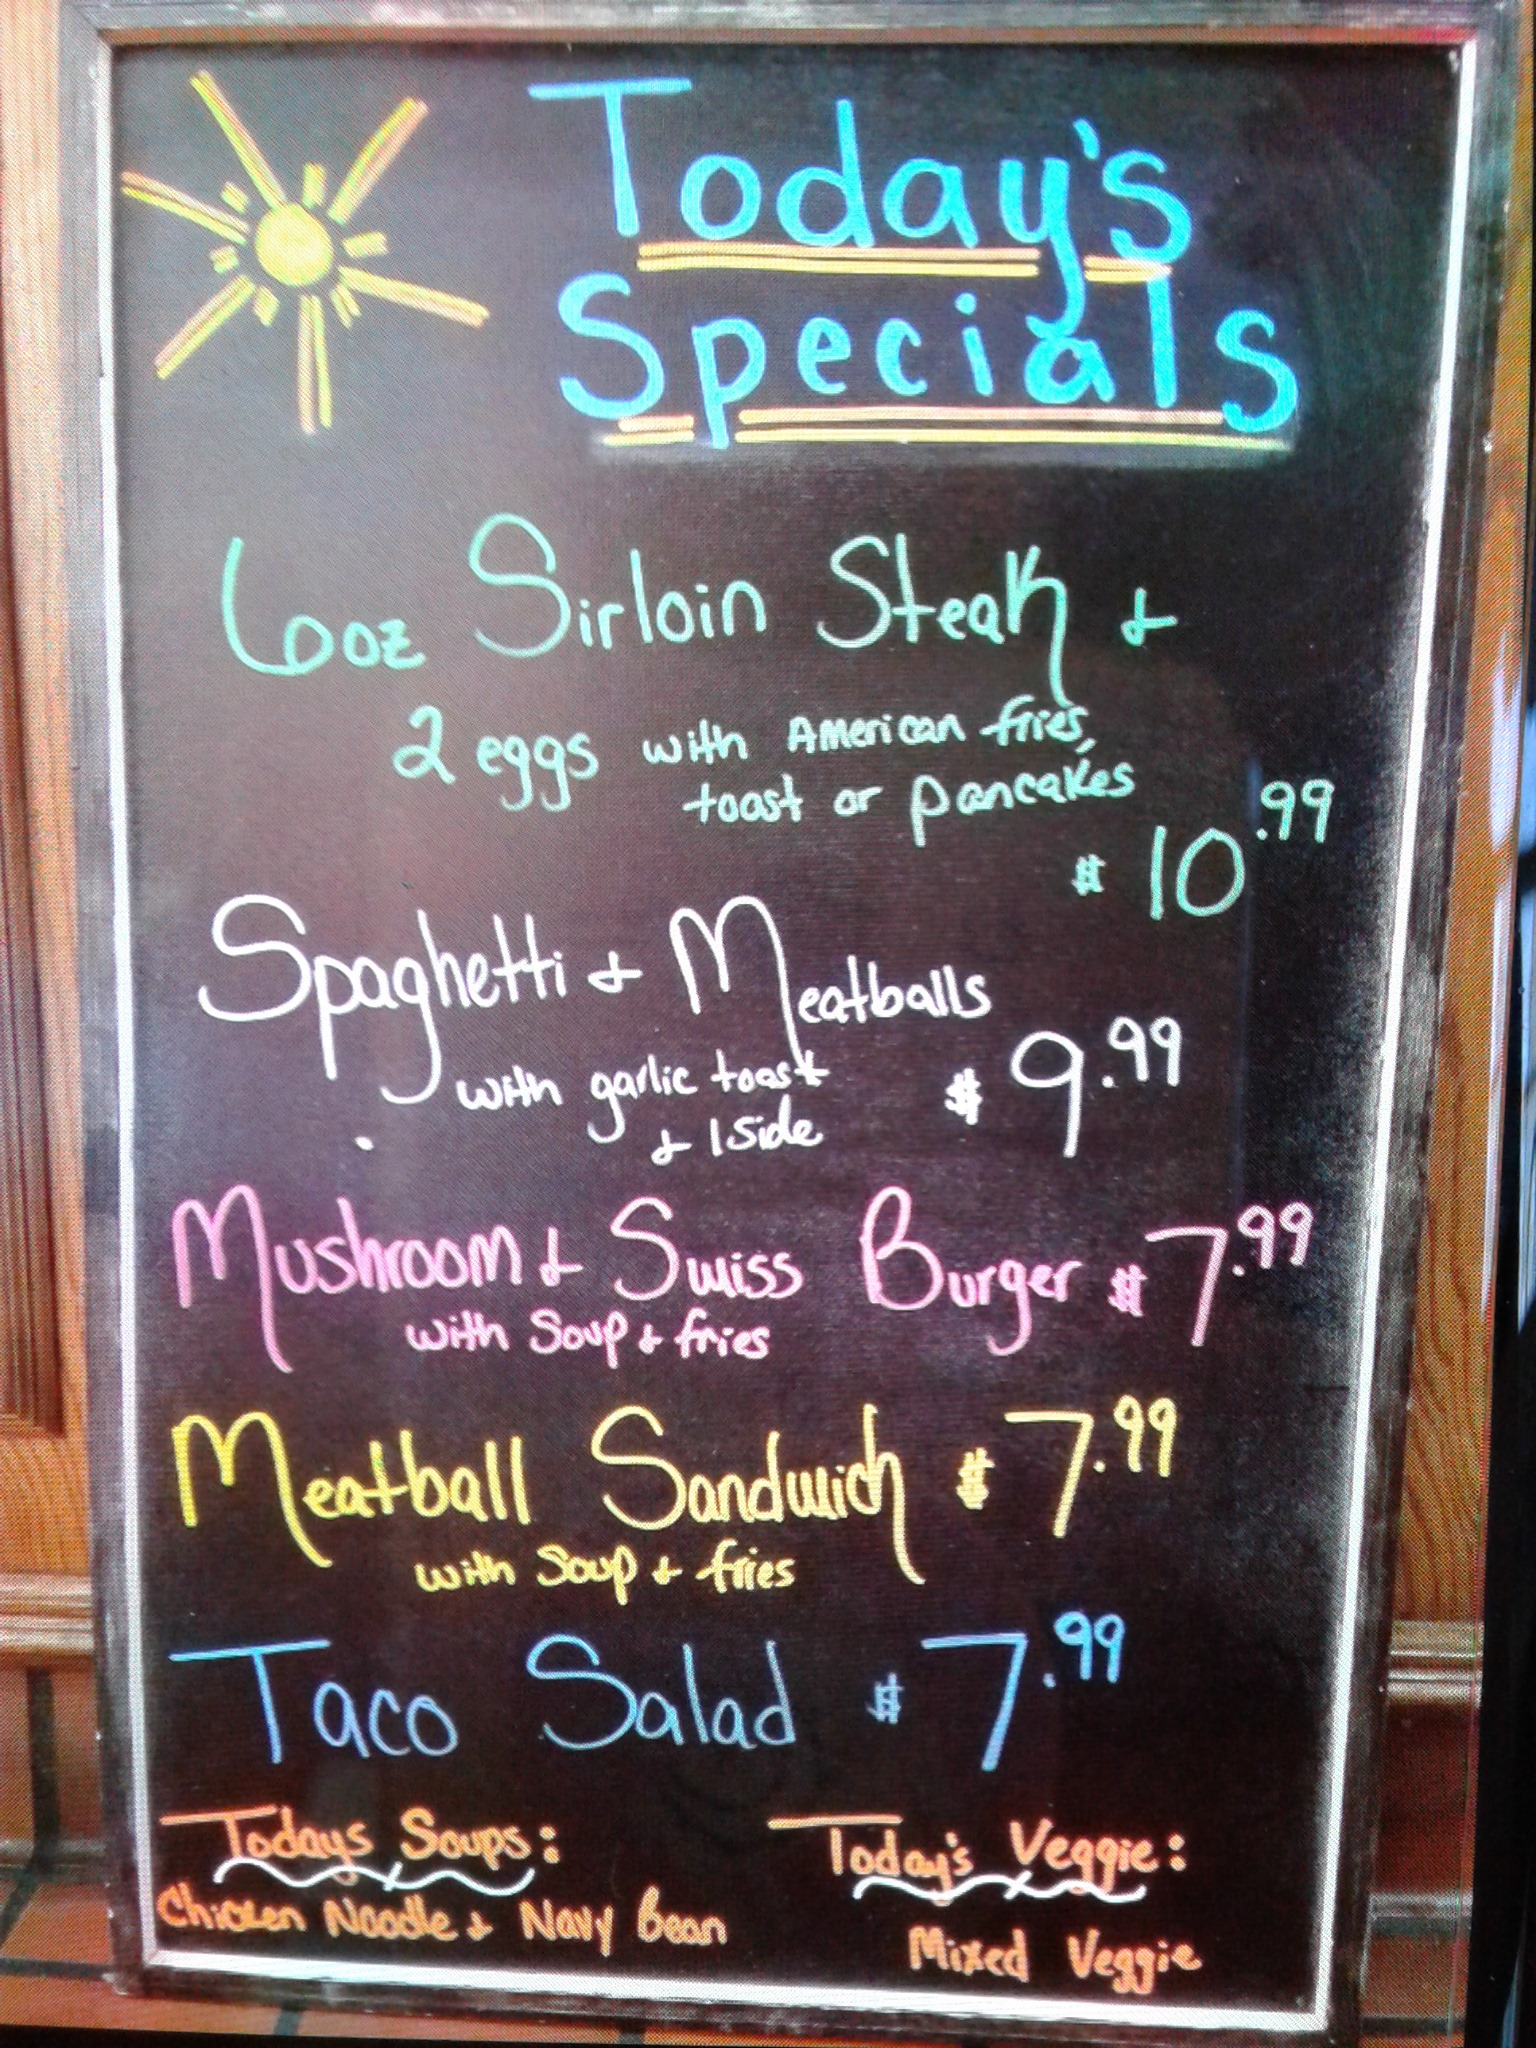 Today's
Specials
6oz Sirloin Steak &
2 eggs with American fries,
toast or pancakes
$10.99
Spaghetti & Meatballs
with garlic toast $9.99
& 1 side
Mushroom & Swiss Burger $7.99
with Soup & fries
Meatball Sandwich $7.99
with Soup & fries
Taco Salad $7.99
Todays Soups:
Chicken Noodle & Navy Bean
Today's Veggie:
Mixed Veggie